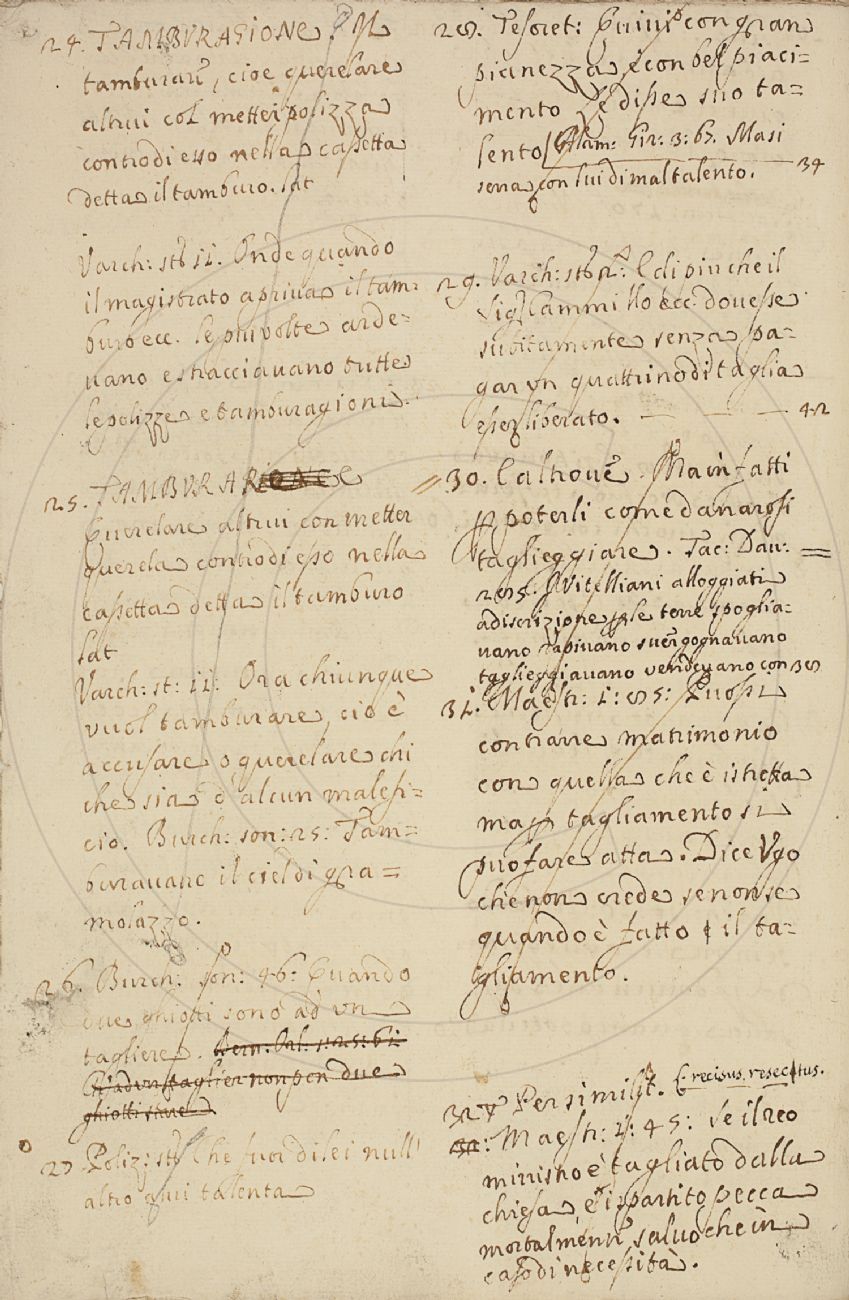 24. TAMBVRAGIONE. Il
tamburare, cioe querelare
altrui col metter polizza
contro di esso nella cassetta
detta il tamburo. Lat
Varch: st: 11. Onde quando
il magistrato apriva il tam-
buro ecc. le più volte arde=
vano e stracciavano tutte
le polizze e tamburagioni.
25. TAMBVRARE
Querelare altrui con metter
querela contro di esso nella
cassetta detta il tamburo
Lat
Varch: st: 11: Ora chiunque
vuol tamburare, ciò è
accusare o querelare chi
che sia d'alcun malefi=
cio. Burch: son: 25: Tam=
buravano il ciel di gra=
molazzo.
26. Burch: son: 46: Quando
due ghiotti sono ad vn
tagliere. Bern: Orl: 1: 25: 61
Ch'ad vn taglier non pon due
ghiotti stare
27. Poliz: st: Che fuor di lei null'
altro qui talenta
28. Tesoret: Quivi con gran
pianezza e con bel piaci=
mento Le disse suo ta=
lento Alam: Gir: 3: 67. Masi
serra con lui di mal talento. 34
29. Varch: st: 12: E di più che il
Sig. Cammillo ecc. dovesse
subitamente senza pa=
gar vn quattrino di taglia
esser liberato. 42
30. E altrove. Ma in fatti
p poterli come danarosi
taglieggiare. Tac: Dav:
285. I Vitelliani alloggiati
a discrizione p le terre spoglia=
vano rapivano svergognavano
taglieggiavano vendevano con 38
31. Maestr: 1: 85: Puossi
contrarre matrimonio
con quella che è istretta
ma p tagliamento si
può fare atta. Dice Vgo
che non crede se non se
quando è fatto il ta=
gliamento.
32 Per similit. Precisus, resectus.
Maestr: 2: 45: Se il reo
ministro è tagliato dalla
chiesa, e ispartito pecca
mortalmente, salvo che in
caso di necessità.